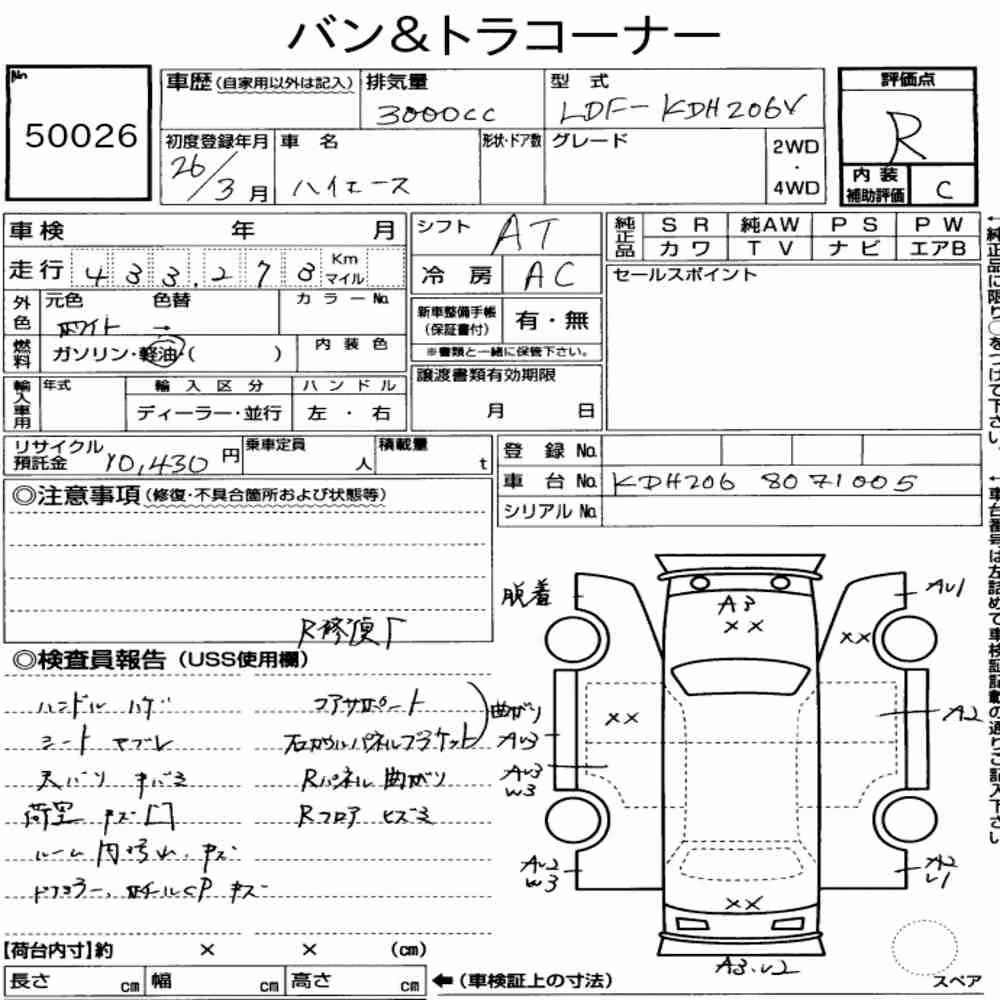 バン&トラコーナー
No.
50026
車歴(自家用以外は記入)
排気量
3000cc
型 式
LDF-KDH206V
評価点
R
内装
補助評価
C
初度登録年月
26/3月
車 名
ハイエース
形状・ドア数
グレード
2WD
・
4WD
車検 年 月
走行 433,278
Km
マイル
シフト
AT
冷 房
AC
純正品
S R
純AW
P S
P W
カ ワ
T V
ナ ビ
エアB
セールスポイント
外色
元色 色替
ホワイト →
カ ラ ー No.
燃料
ガソリン・軽油・( )
内 装 色
新車整備手帳
(保証書付)
有・無
※書類と一緒に保管下さい。
輸入車用
年式
輸 入 区 分
ディーラー・並行
ハ ン ド ル
左 ・ 右
譲渡書類有効期限
月 日
リサイクル
預託金
10,430円
乗車定員
人
積載量
t
登 録 No.
車 台 No.
KDH206 8071005
シリアル No.
←純正品に限り○をつけて下さい。
←車台番号は左詰めで車検証記載の通りご記入下さい。
◎注意事項(修復・不具合箇所および状態等)
R修復
◎検査員報告(USS使用欄)
ハンドル ハゲ
シート ヤブレ
天バリ キバミ
荷室 キズ凹
ルーム内汚れ、キズ
ドアミラー、
キズ
コアサポート
曲がり
Rパネル 曲がり
Rフロア ヒズミ
脱着
AU1
A3
××
××
××
A2
AU3
AU3
W3
AU2
W3
A2
U1
××
A3.U2
スペア
【荷台内寸】約 × × (cm)
長さ cm
幅 cm
高さ cm
←(車検証上の寸法)